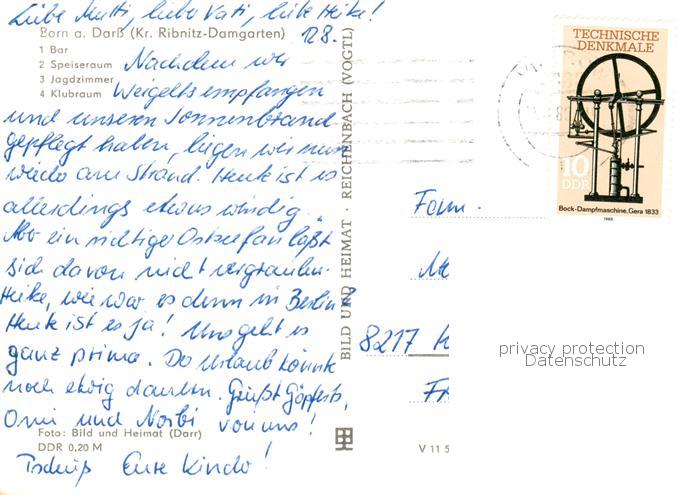 Liebe Mutti, lieber Vati, liebe Heike!
Born a. Darß (Kr. Ribnitz-Damgarten)
12.8.
1 Bar
2 Speiseraum
3 Jagdzimmer
4 Klubraum
Nachdem wir
Weigelts empfangen
und unseren Sonnenbrand
gepflegt haben, liegen wir nun
wieder am Strand. Heute ist es
allerdings etwas windig.
Aber ein richtiger Ostseefan läßt
sich davon nicht vergraulen.
Heike, wie war es denn in Berlin?
Heute ist es ja! Uns geht es
ganz prima. Der Urlaub könnte
noch ewig dauern. Grüßt Göpferts,
Omi und Norbi von uns!
Foto: Bild und Heimat (Darr)
DDR 0,20 M
Tschüß Eure Kinder!
BILD UND HEIMAT · REICHENBACH (VOGTL)
V 11 5
TECHNISCHE
DENKMALE
10
DDR
Bock-Dampfmaschine, Gera 1833
1985
Fam.
8217
privacy protection
Datenschutz